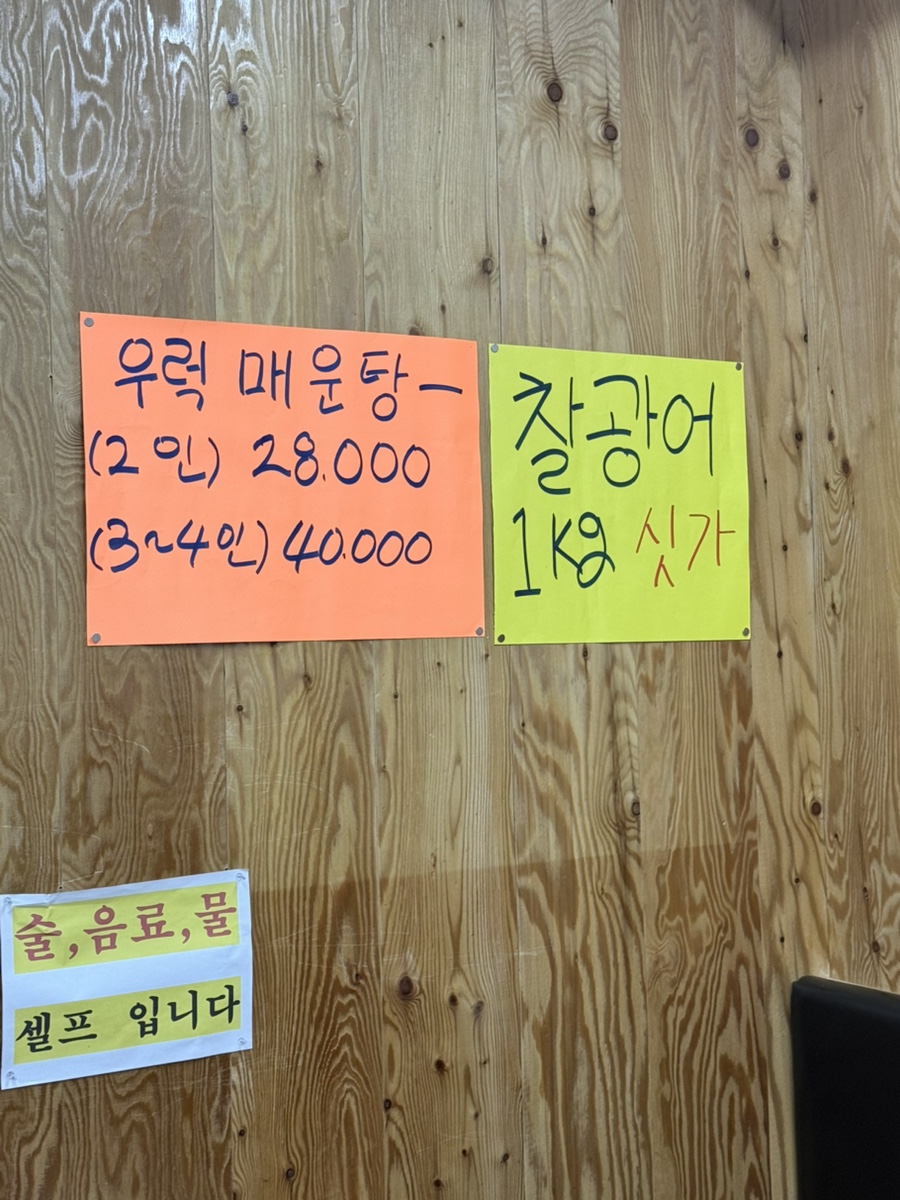 우럭 매운탕-
(2인) 28.000
(3~4인) 40.000
찰광어
1Kg 싯가
술,음료,물
셀프 입니다